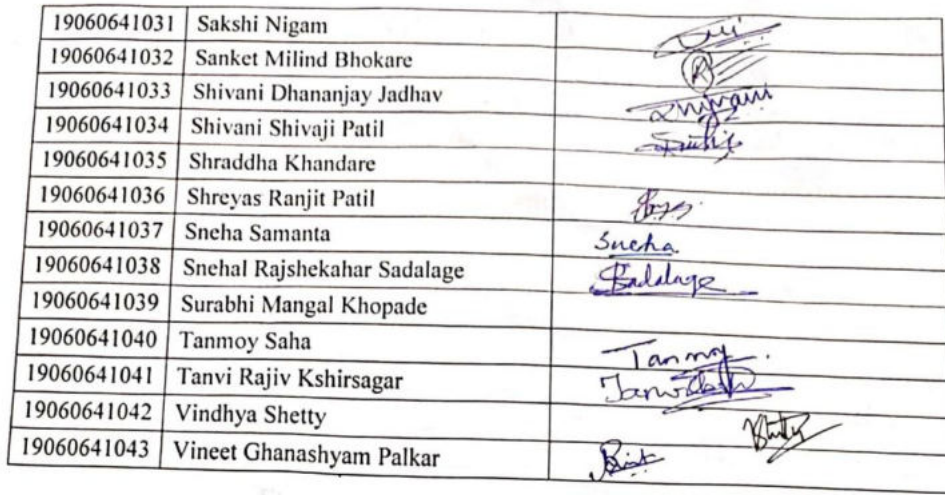 19060641031 Sakshi Nigam
19060641032 Sanket Milind Bhokare
19060641033 Shivani Dhananjay Jadhav Shivani
19060641034 Shivani Shivaji Patil
19060641035 Shraddha Khandare
19060641036 Shreyas Ranjit Patil
19060641037 Sneha Samanta Sneha
19060641038 Snehal Rajshekahar Sadalage Sadalage
19060641039 Surabhi Mangal Khopade
19060641040 Tanmoy Saha Tanmoy
19060641041 Tanvi Rajiv Kshirsagar
19060641042 Vindhya Shetty
19060641043 Vineet Ghanashyam Palkar